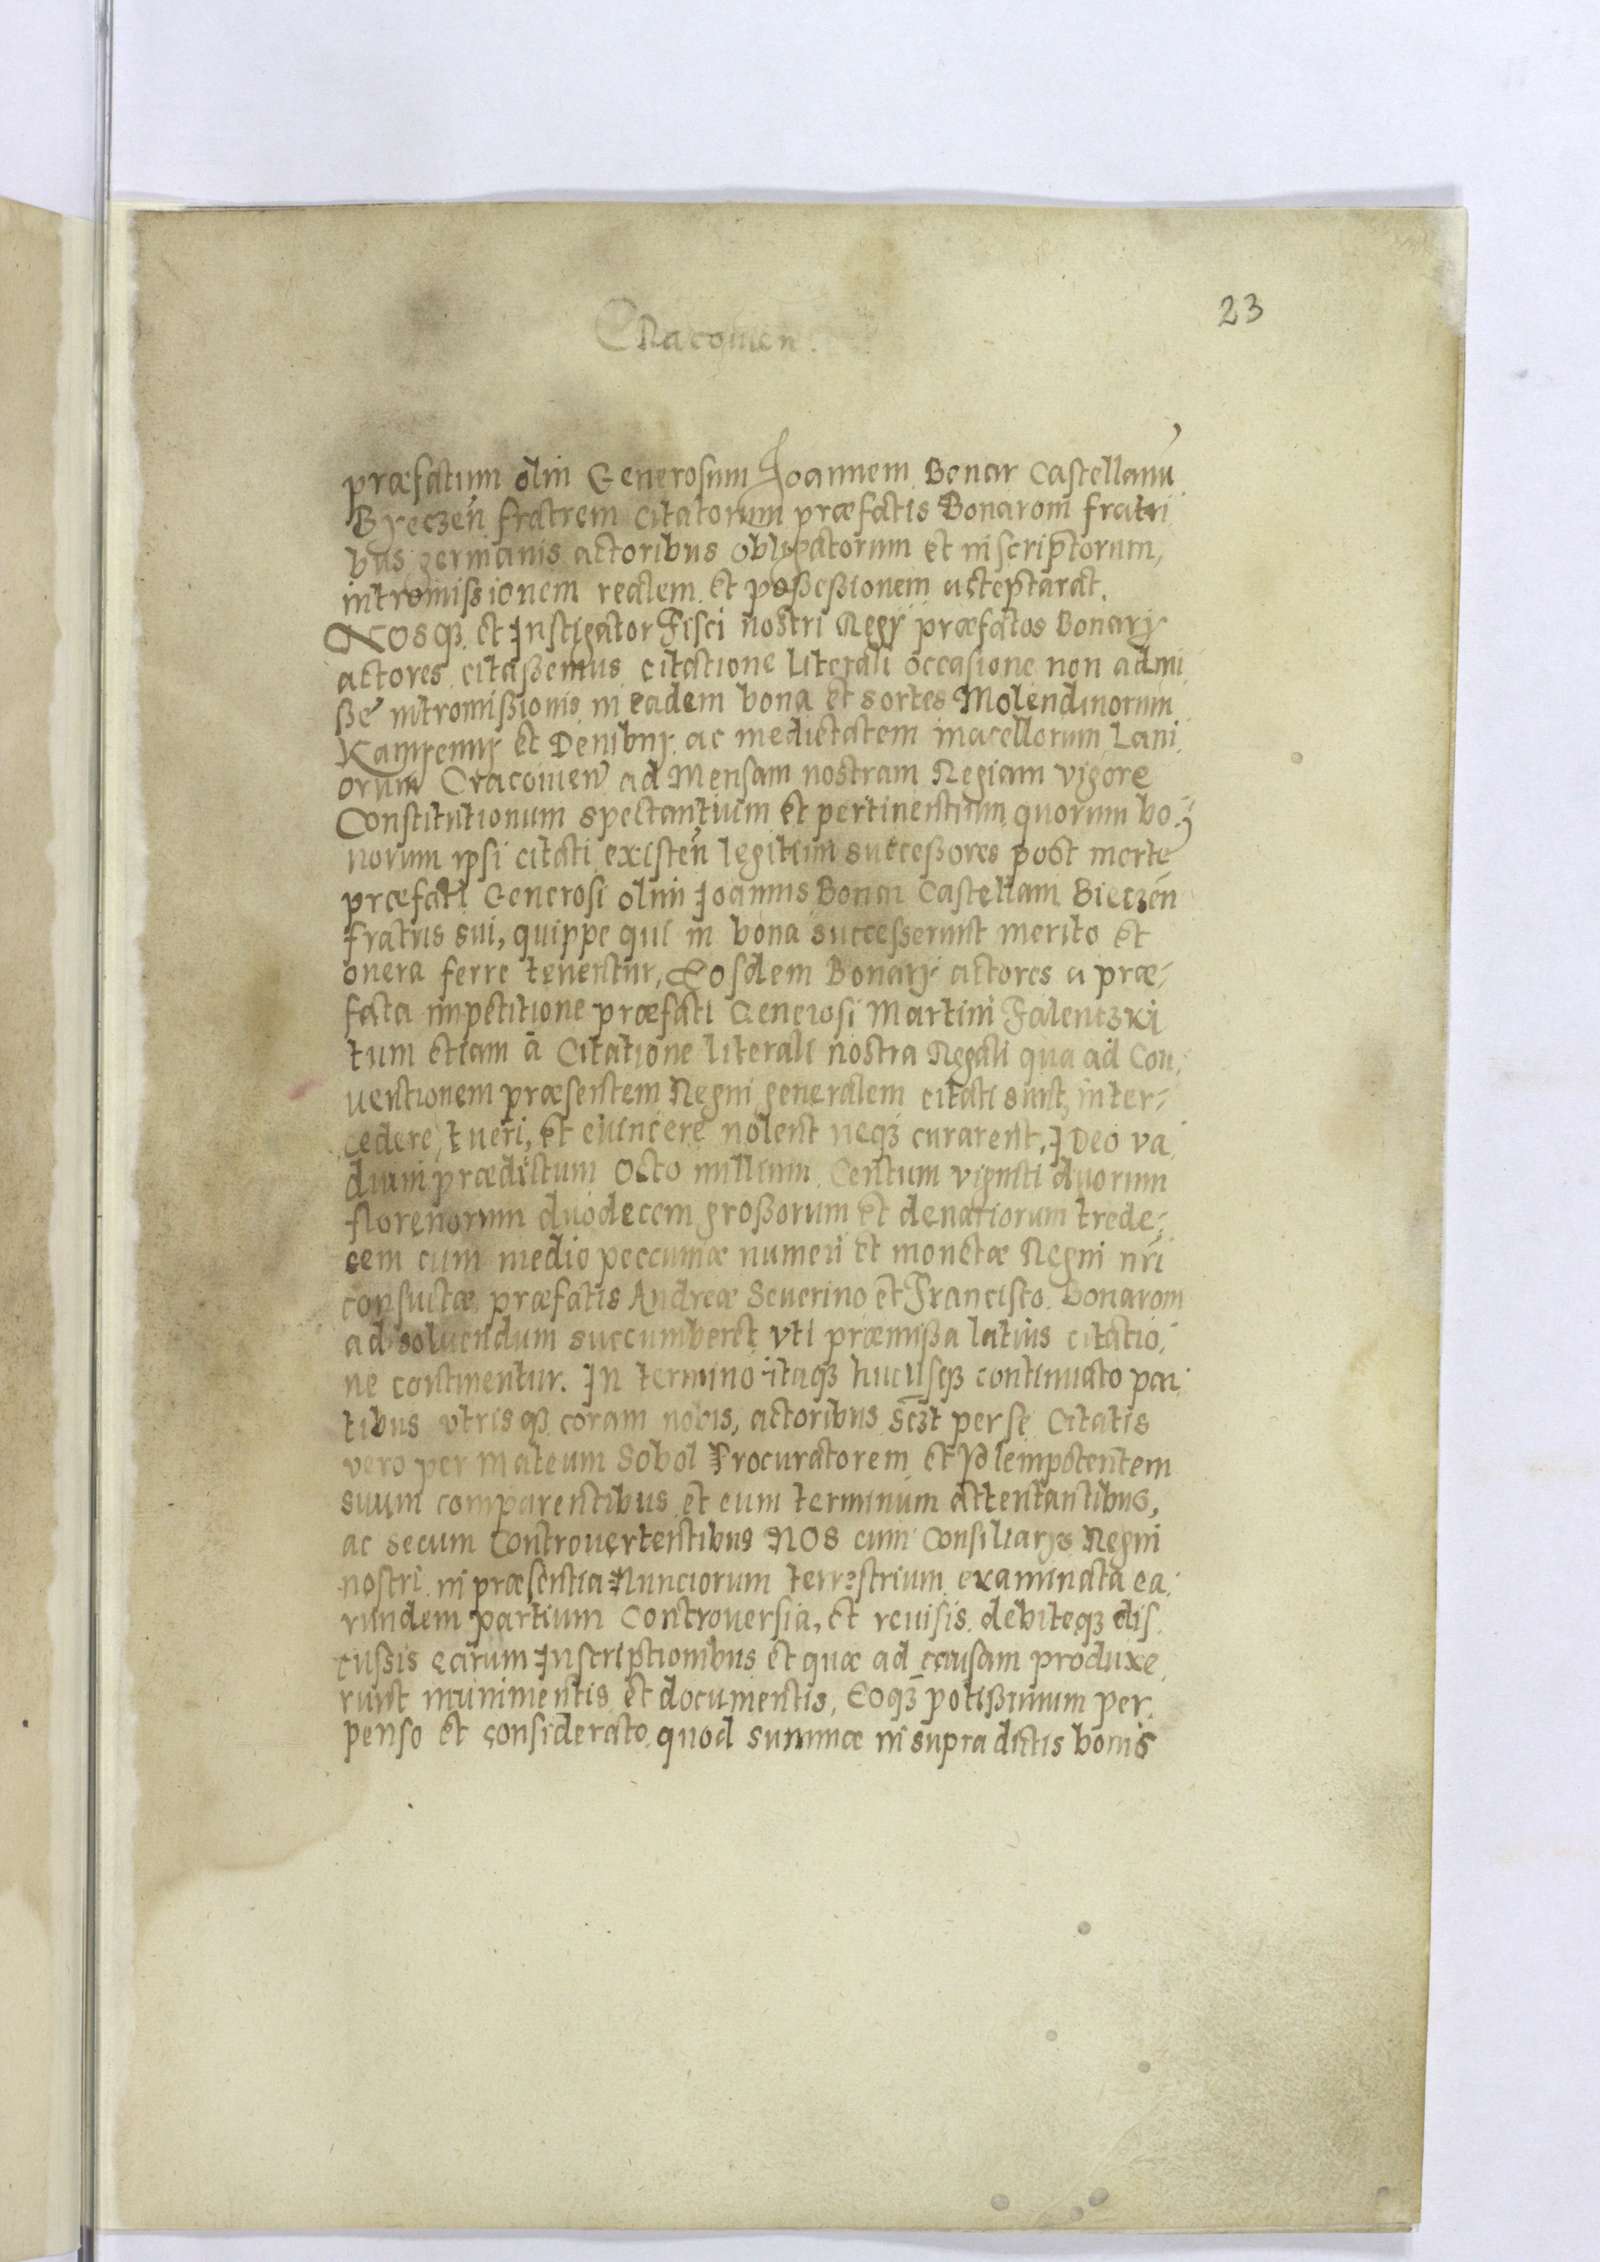 23
Cracouien.
præfatum olim Generosum Joannem Bonar Castellanū
Byeczeñ fratrem citatorum præfatis Bonarom fratri
bus germanis actoribus obligatorum et inscriptorum,
intromissionem realem et poßeßionem acceptarat.
NOSqꝫ et Instigator Fisci nostri Regÿ præfatos Bonarÿ
actores citaßemus citatione literali occasione non admi
ßę intromißionis in eadem bona et sortes Molendinorum
Kamÿennÿ et Denibnÿ ac medietatem macellorum Lani
orum Cracouień ad Mensam nostram Regiam vigore
Constitutionum spectantium et pertinentium quorum bo⸗
norum ipsi citati existeñ legitimi succeßores post mortē
præfati Generosi olim Joannis Bonar Castellani Bieczeñ
fratris sui, quippe qui in bona successerunt merito et
onera ferre tenentur, Eosdem Bonarÿ actores a præ⸗
fata impetitione præfati Generosi Martini Falentzki
tum etiam à Citatione literali nostra Regali qua ad Con
uentionem præsentem Regni generalem citati sunt, inter⸗
cedere, tueri, et euincere nolent neqꝫ curarent, IDeo va
dium prædictum Octo millium Centum viginti duorum
florenorum duodecem großorum et denariorum trede⸗
cem cum medio peccuniæ numeri et monetæ Regni nr̄i
consuetæ præfatis Andreæ Seuerino et Francisco Bonarom
ad soluendum succumberet vti præmißa latius citatio⸗
ne continentur. In termino itaqꝫ hucusqꝫ continuato par
tibus vtrisqꝫ coram nobis, actoribus scꝫt per se Citatis
vero per Mateum Sobol Procuratorem et Plempotentem
suum comparentibus et eum terminum attentantibus,
ac secum Controuertentibus NOS cum Consiliarÿs Regni
nostri in præsentia Nunciorum terrestrium examinata ea
rundem partium Controuersia, et reuisis debiteqꝫ dis
cussis earum Inscriptionibus et quæ ad causam produxe
runt munimentis et documentis, Eoqꝫ potißimum per
penso et considerato quod summæ in supra dictis bonis